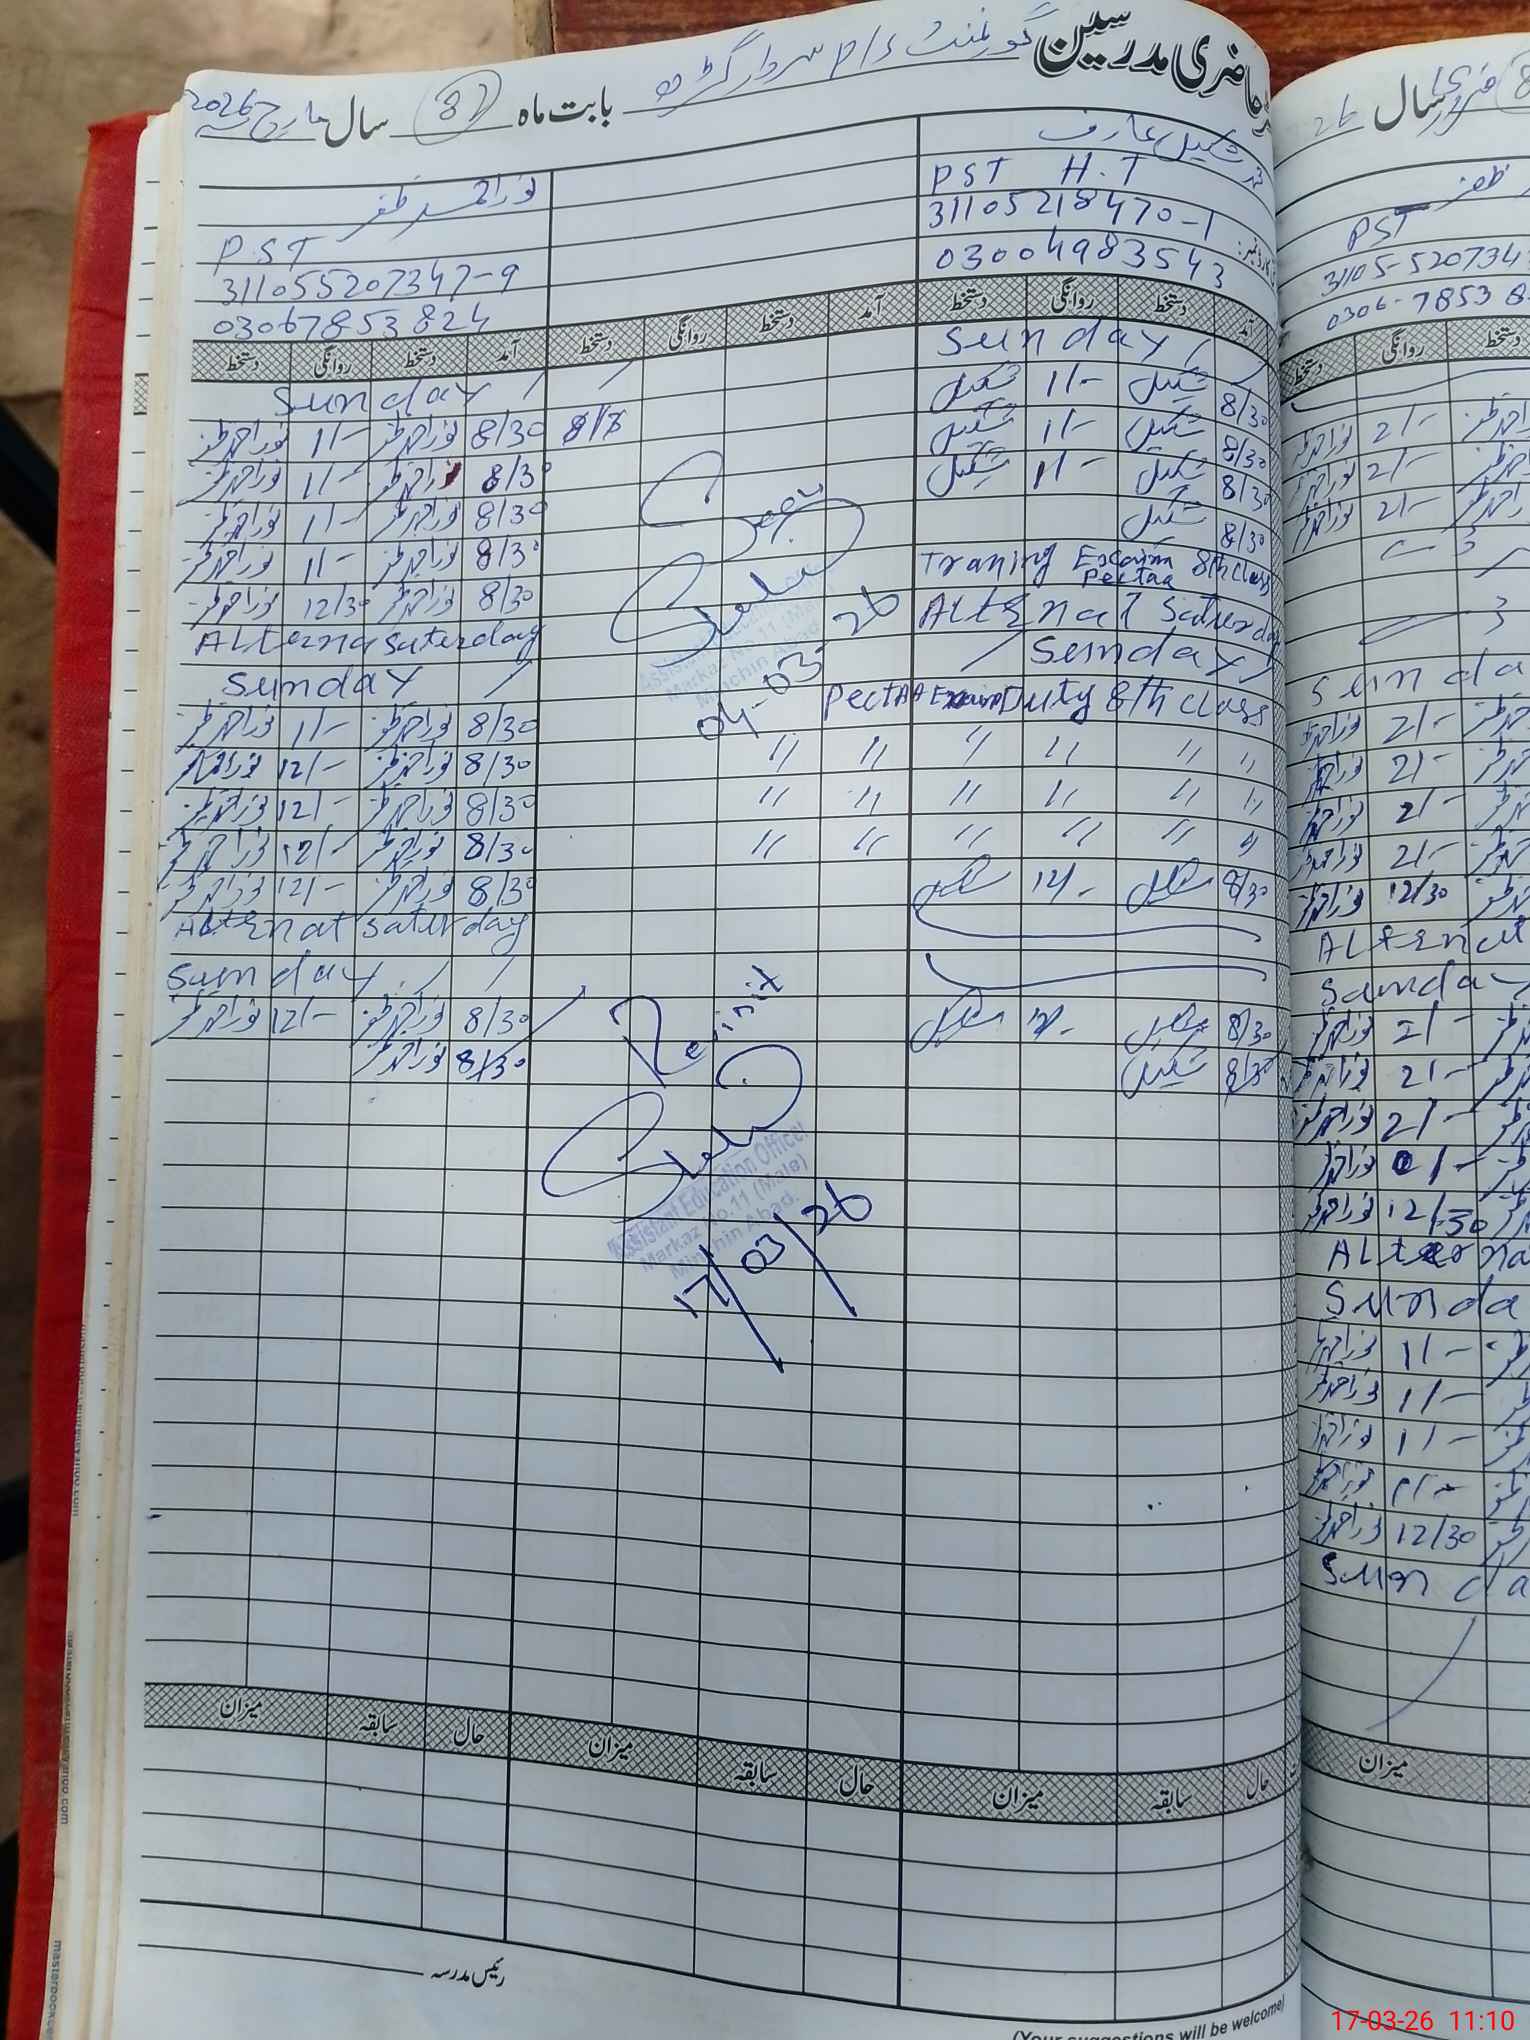 حاضری مدرسین گورنمنٹ P/S سردار گڑھ بابت ماہ 3 سال مارچ 2026
شکیل عارف
PST H.T
31105218470-1
03004983543
نور احمد ظفر
P.ST
311055207347-9
03067853824
آمد دستخط روانگی دستخط آمد دستخط روانگی دستخط آمد دستخط روانگی دستخط
Sunday Sunday
8/30 شکیل 1/- شکیل 8/30 نور احمد ظفر 1/- نور احمد ظفر
8/30 شکیل 1/- شکیل 8/30 نور احمد ظفر 1/- نور احمد ظفر
8/30 شکیل 1/- شکیل 8/30 نور احمد ظفر 1/- نور احمد ظفر
8/30 شکیل 8/30 نور احمد ظفر 1/- نور احمد ظفر
Traning Exam Pectaa 8th class 8/30 نور احمد ظفر 12/30 نور احمد ظفر
ALtEnat Saturday ALterna saturday
Sunday Sunday
PectAA Exam Duty 8th class 8/30 نور احمد ظفر 1/- نور احمد ظفر
" " " " " " 8/30 نور احمد ظفر 12/- نور احمد ظفر
" " " " " " 8/30 نور احمد ظفر 12/- نور احمد ظفر
" " " " " " 8/30 نور احمد ظفر 12/- نور احمد ظفر
8/30 شکیل 12/- شکیل 8/30 نور احمد ظفر 12/- نور احمد ظفر
ALtEnat saturday
Sunday
8/30 شکیل 12/- شکیل 8/30 نور احمد ظفر 12/- نور احمد ظفر
8/30 شکیل 8/30 نور احمد ظفر
Seen
Markaz No.11 (Male)
Minchin Abad
04-03-26
Revisit
Assistant Education Officer
Markaz No.11 (Male)
Minchin Abad.
17/03/26
حال سابقہ میزان حال سابقہ میزان حال سابقہ میزان
رئیس مدرسہ
(Your suggestions will be welcome)
فروری سال 26
ظفر
PST
31105-520734
0306-7853 8
دستخط روانگی دستخط
2/- نور احمد ظفر
2/- نور احمد ظفر
2/- نور احمد ظفر
Sunda
2/- نور احمد ظفر
2/- نور احمد ظفر
2/- نور احمد ظفر
2/- نور احمد ظفر
12/30 نور احمد ظفر
ALtEnat
Sunday
2/- نور احمد ظفر
2/- نور احمد ظفر
2/- نور احمد ظفر
نور احمد ظفر
12/30 نور احمد ظفر
ALterna
Sunda
1/- نور احمد ظفر
1/- نور احمد ظفر
1/- نور احمد ظفر
1/- نور احمد ظفر
12/30 نور احمد ظفر
Sunda
میزان
17-03-26 11:10